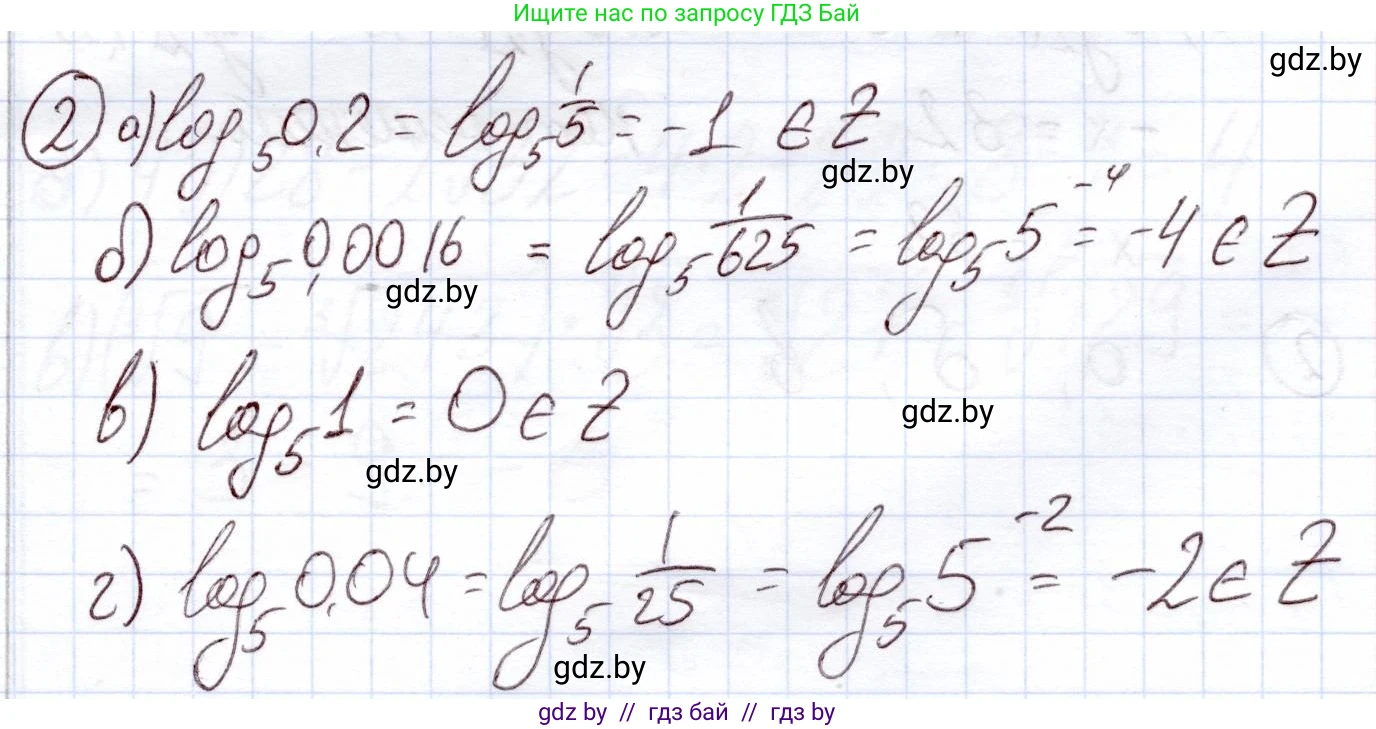 Ищите нас по запросу ГДЗ Бай
gdz.by
② а) log₅0,2 = log₅ 1/5 = -1 ∈ Z
gdz.by
б) log₅0,0016 = log₅ 1/625 = log₅5⁻⁴ = -4 ∈ Z
gdz.by
в) log₅1 = 0 ∈ Z
gdz.by
gdz.by
г) log₅0,04 = log₅ 1/25 = log₅5⁻² = -2 ∈ Z
gdz.by
gdz by // гдз бай // гдз by